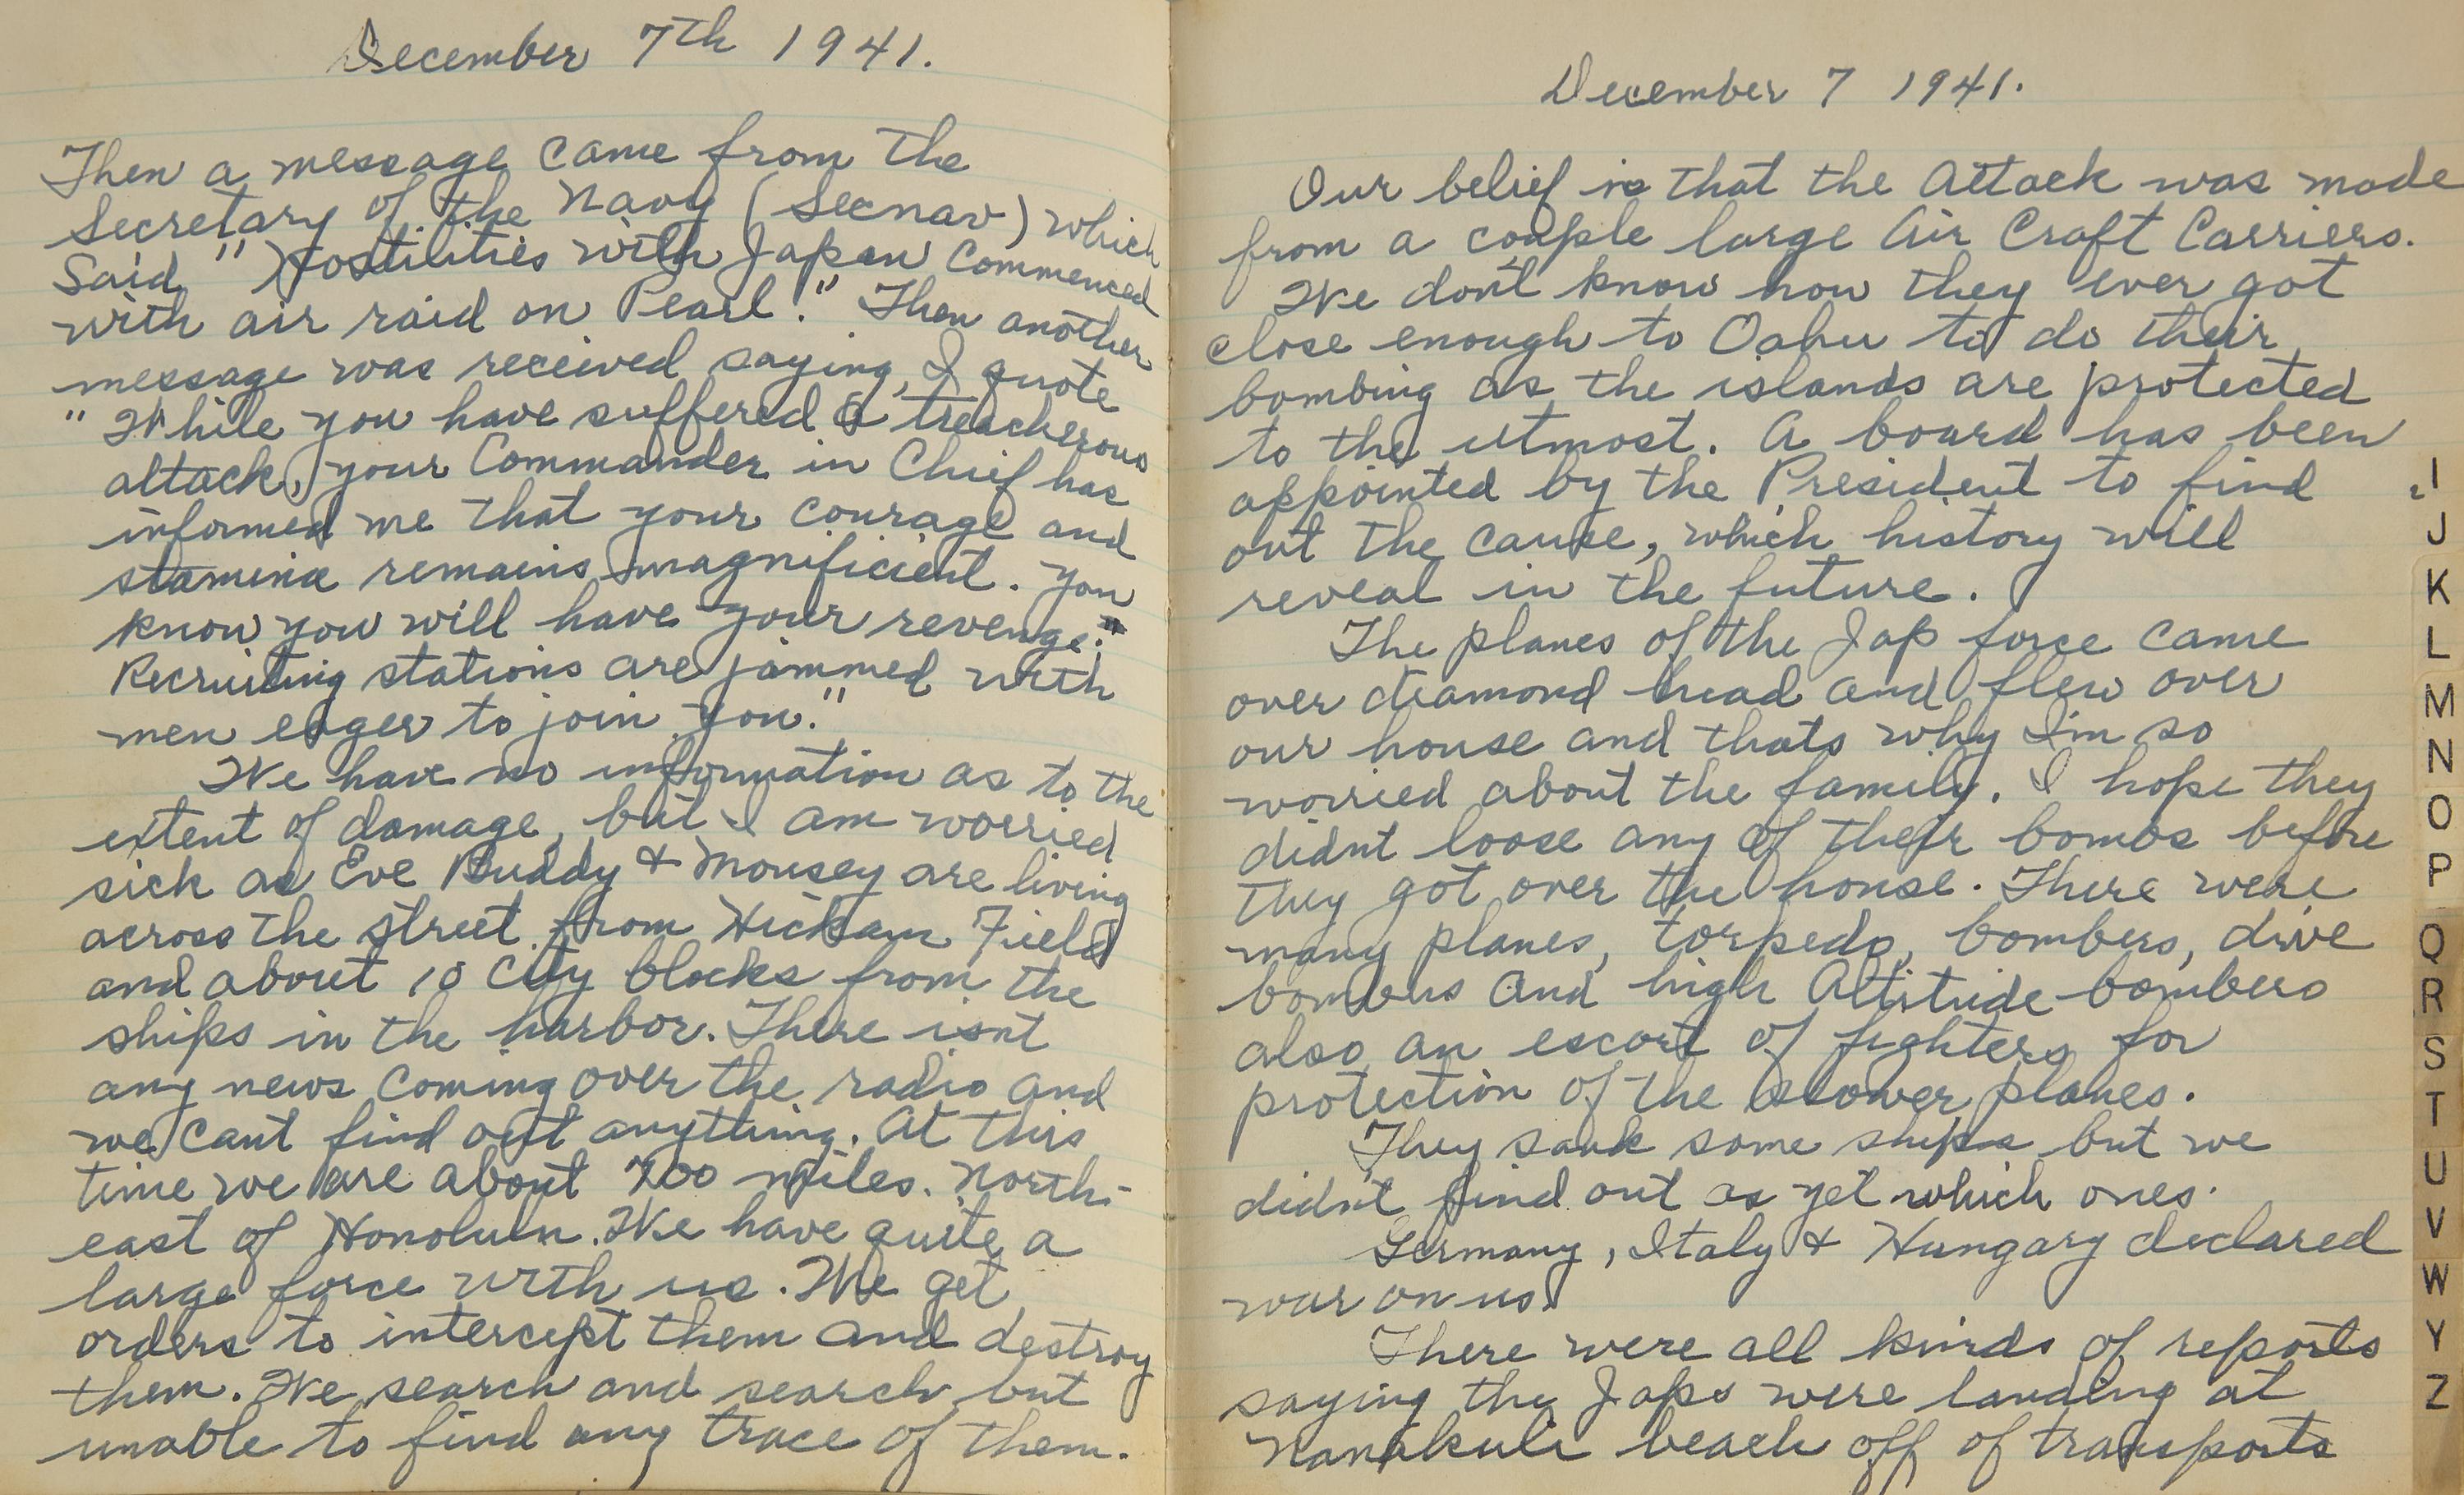 December 7th 1941.
Then a message came from the
Secretary of the Navy (Secnav) which
said, "Hostilities with Japan commenced
with air raid on Pearl." Then another
message was received saying, I quote
"While you have suffered a treacherous
attack, your Commander in Chief has
informed me that your courage and
stamina remains magnificient. You
know you will have your revenge."
Recruiting stations are jammed with
men eager to join you."
We have no information as to the
extent of damage, but I am worried
sick as Eve Buddy & Mousey are living
across the street from Hickam Field
and about 10 City blocks from the
ships in the harbor. There isnt
any news coming over the radio and
we cant find out anything. At this
time we are about 700 miles. North-
east of Honolulu. We have quite a
large force with us. We get
orders to intercept them and destroy
them. We search and search but
unable to find any trace of them.
December 7 1941.
Our belief is that the Attack was made
from a couple large Air Craft Carriers.
We don't know how they ever got
close enough to Oahu to do their
bombing as the islands are protected
to the utmost. A board has been
appointed by the President to find
out the cause, which history will
reveal in the future.
The planes of the Jap force came
over diamond head and flew over
our house and thats why I'm so
worried about the family. I hope they
didnt loose any of their bombs before
they got over the house. There were
many planes, torpedo, bombers, dive
bombers and high Altitude bombers
also an escort of fighters for
protection of the slower planes.
They sank some ships but we
didn't find out as yet which ones.
Germany, Italy & Hungary declared
war on us.
There were all kinds of reports
saying the Japs were landing at
Nanakuli beach off of transports
I
J
K
L
M
N
O
P
Q
R
S
T
U
V
W
Y
Z